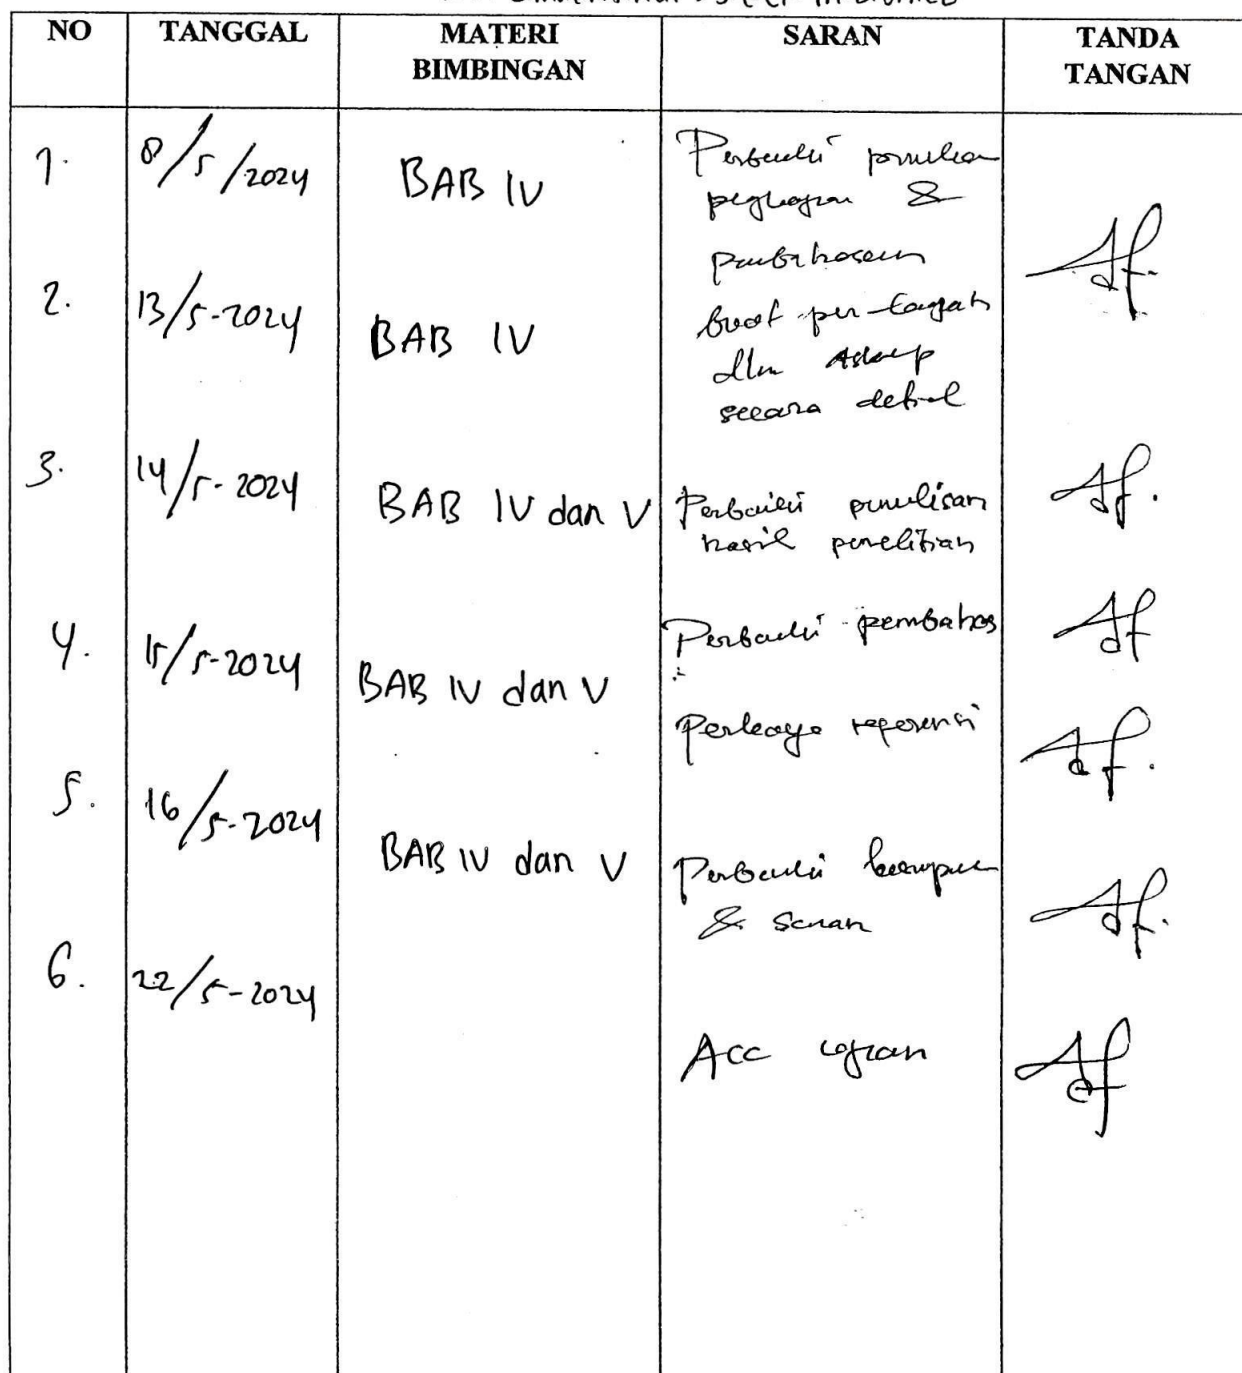 NO TANGGAL MATERI BIMBINGAN SARAN TANDA TANGAN
1. 8/5/2024 BAB IV Perbaiki
&
2. 13/5-2024 BAB IV buat per-
dlm Askep
secara detail
3. 14/5-2024 BAB IV dan V Perbaiki penulisan
hasil penelitian
4. 15/5-2024 BAB IV dan V Perbaiki pembahas
Perkaya referensi
5. 16/5-2024 BAB IV dan V Perbaiki
& saran
6. 22/5-2024
Acc